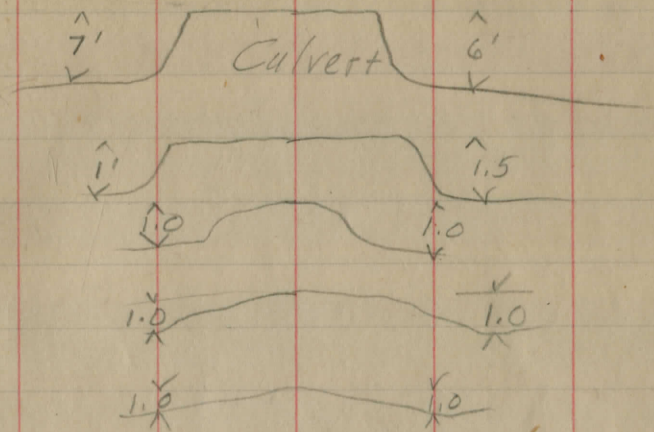 7' Culvert 6'
1' 1.5
1.0 1.0
1.0 1.0
1.0 1.0